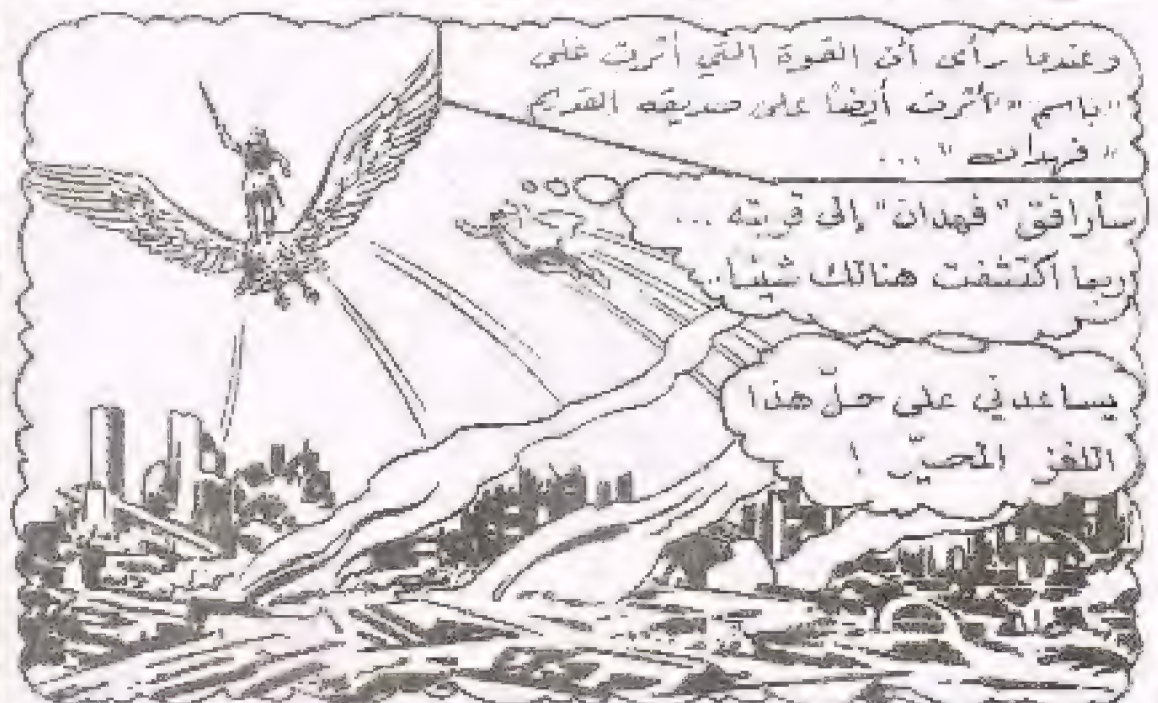 وعندما رأى أن القوة التي أثرت على
"باسم" أثرت أيضاً على صديقه القديم
"فهدان" ...
سأرافق "فهدان" إلى قريته ...
ربما اكتشفت هنالك شيئاً
يساعدني على حلّ هذا
اللغز المحيّر !